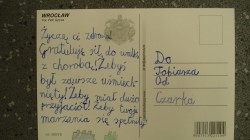 WROCŁAW
Życzę ci zdrowia
Gratuluję sił do walki
z chorobą! Żebyś
był zawsze uśmiech-
nięty! Żebyś miał dużo
przyjaciół! Żeby Twoje
marzenia się spełniły!
Do
Tobiasza
Od
Czarka